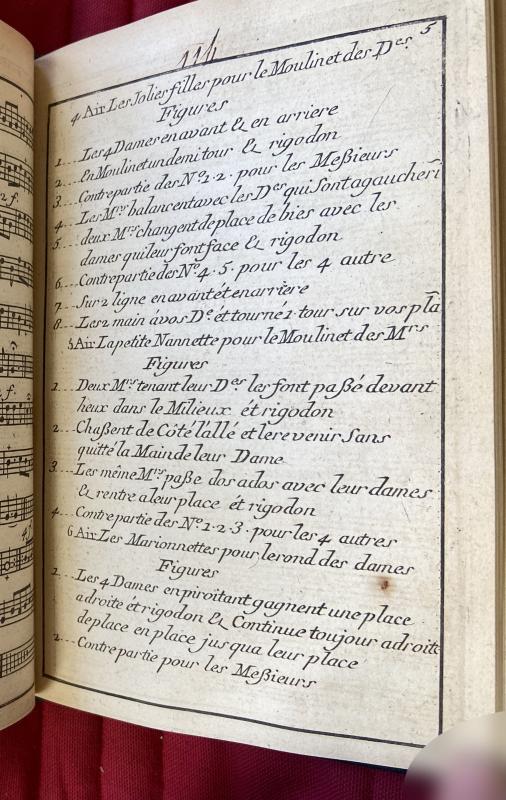 114
5
4 Air Les Jolies filles pour le Moulinet des D.es
Figures
1... Les 4 Dames en avant & en arriere
2... En Moulinet un demi tour & rigodon
3... Contre partie des N.o 1. 2. pour les Meßieurs
4... Les M.rs balancent avec les D.es qui sont a gauche ri
5... deux M.rs changent de place de bies avec les
dames qui leur font face & rigodon
6... Contre partie des N.o 4. 5. pour les 4 autre
7... Sur 2 ligne en avant ét en arriere
8... Les 2 main á vos D.e ét tourné 1. tour sur vos pla
5 Air La petite Nannette pour le Moulinet des M.rs
Figures
1... Deux M.rs tenant leur D.es les font paßé devant
heux dans le Milieux ét rigodon
2... Chaßent de Côté l'allé et le revenir Sans
quitté la Main de leur Dame
3... Les même M.rs paße dos a dos avec leur dames
& rentre a leur place ét rigodon
4... Contre partie des N.o 1. 2. 3. pour les 4 autres
6 Air Les Marionnettes pour le rond des dames
Figures
1... Les 4 Dames en piroitant gagnent une place
a droite ét rigodon & Continue toujour a droite
de place en place jus qua leur place
2... Contre partie pour les Meßieurs